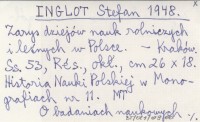 INGLOT Stefan 1948.
Zarys dziejów nauk rolniczych
i leśnych w Polsce. - Kraków.
Ss. 53, Rés., okł., cm 26 x 18.
Historia Nauki Polskiej w Mono-
grafiach nr 11. MT
O badaniach naukowych